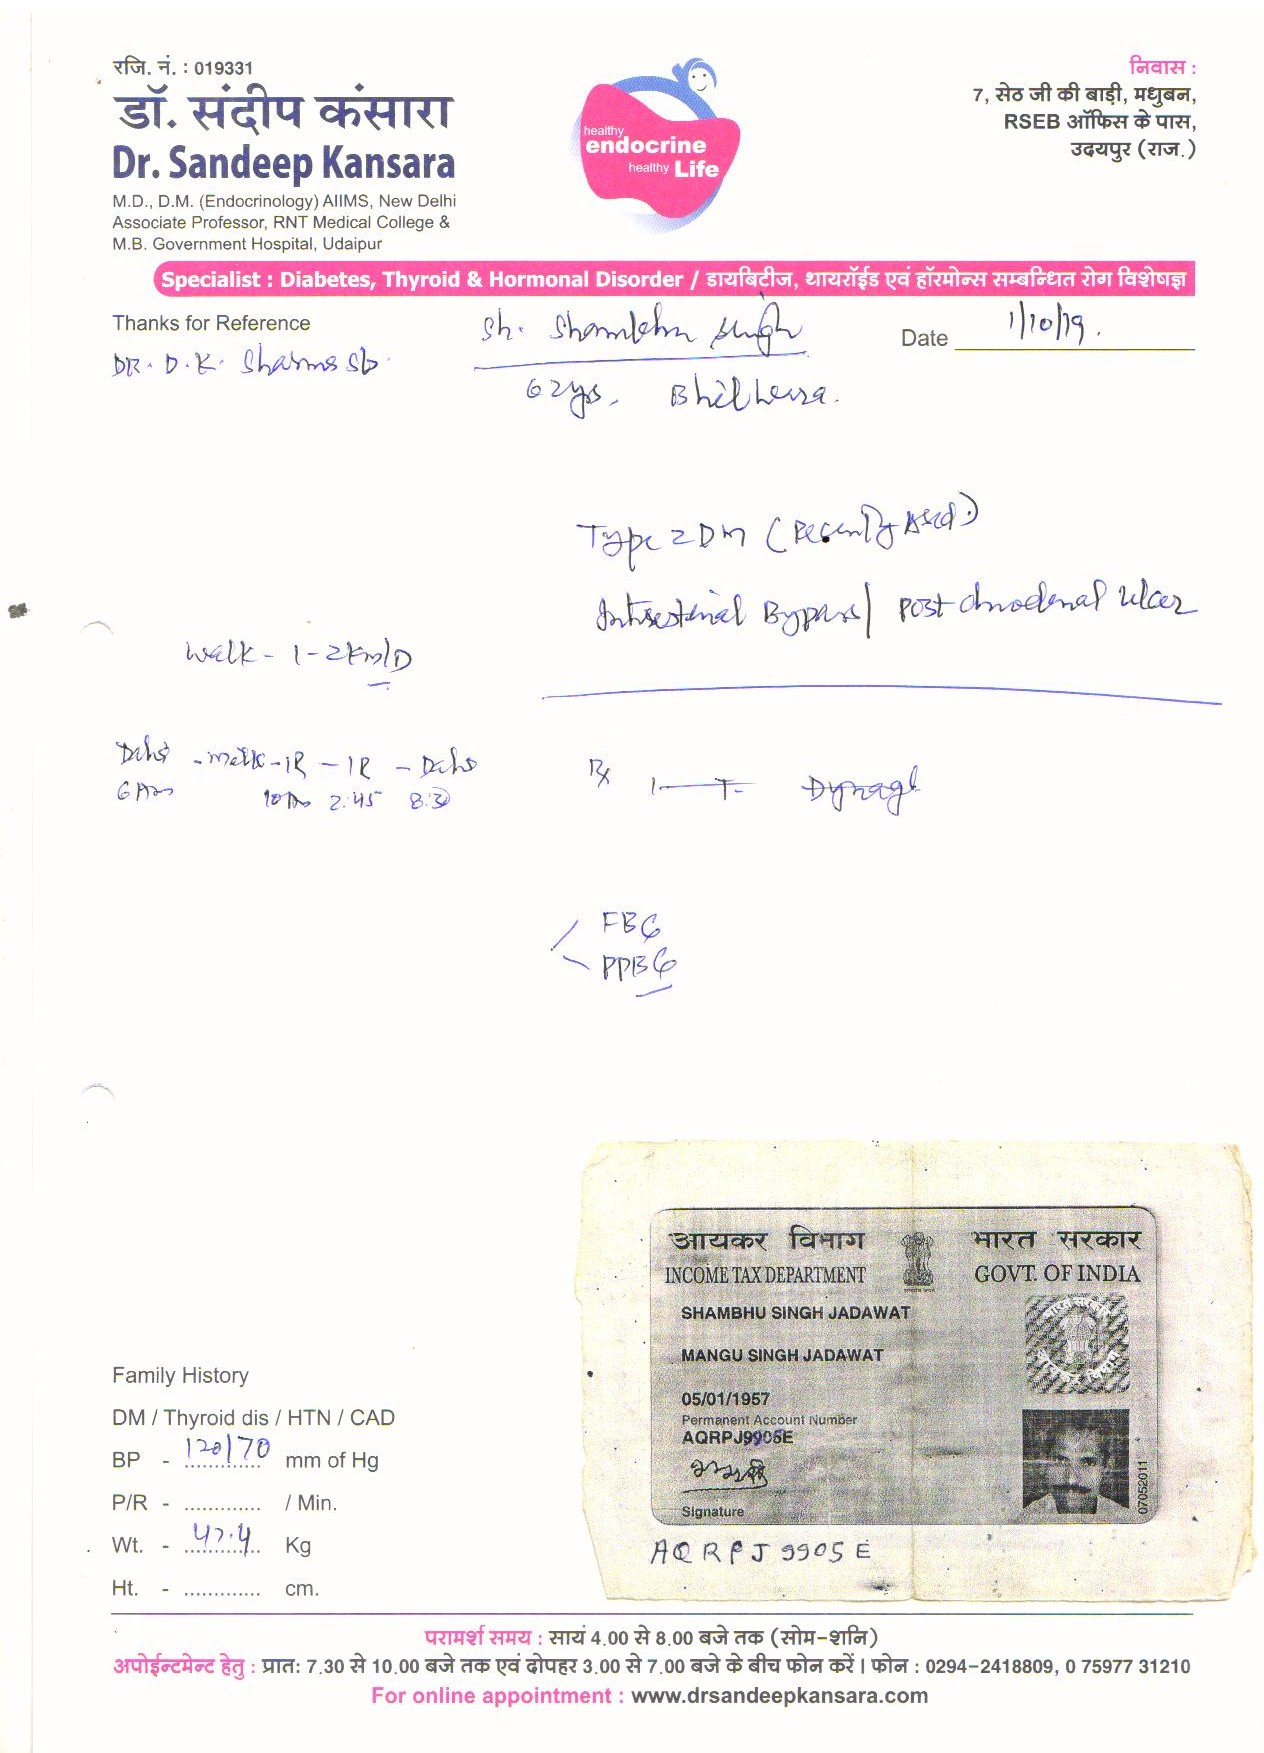 रजि. नं. : 019331
डॉ. संदीप कंसारा
Dr. Sandeep Kansara
M.D., D.M. (Endocrinology) AIIMS, New Delhi
Associate Professor, RNT Medical College &
M.B. Government Hospital, Udaipur
healthy
endocrine
healthy Life
निवास :
7, सेठ जी की बाड़ी, मधुबन,
RSEB ऑफिस के पास,
उदयपुर (राज.)
Specialist : Diabetes, Thyroid & Hormonal Disorder / डायबिटीज, थायरॉईड एवं हॉरमोन्स सम्बन्धित रोग विशेषज्ञ
Thanks for Reference
DR. D. K. Sharma Sb
Sh. Shambhu Singh
62 ys. Bhilwara.
Date 1/10/19.
Type 2 DM (Recently
Intestinal Bypass / Post duodenal ulcer
Walk - 1-2 Km/D
- Milk - 1R - 1R -
6 Am 10 Am 2:45 8:30
Rx 1 T-
FBG
PPBG
आयकर विभाग भारत सरकार
INCOME TAX DEPARTMENT GOVT. OF INDIA
SHAMBHU SINGH JADAWAT
MANGU SINGH JADAWAT
05/01/1957
Permanent Account Number
AQRPJ9905E
Signature
07052011
AQRPJ9905E
Family History
DM / Thyroid dis / HTN / CAD
BP - 120/70 mm of Hg
P/R - ............. / Min.
Wt. - 47.4 Kg
Ht. - ............. cm.
परामर्श समय : सायं 4.00 से 8.00 बजे तक (सोम-शनि)
अपोईन्टमेन्ट हेतु : प्रात: 7.30 से 10.00 बजे तक एवं दोपहर 3.00 से 7.00 बजे के बीच फोन करें। फोन : 0294-2418809, 0 75977 31210
For online appointment : www.drsandeepkansara.com